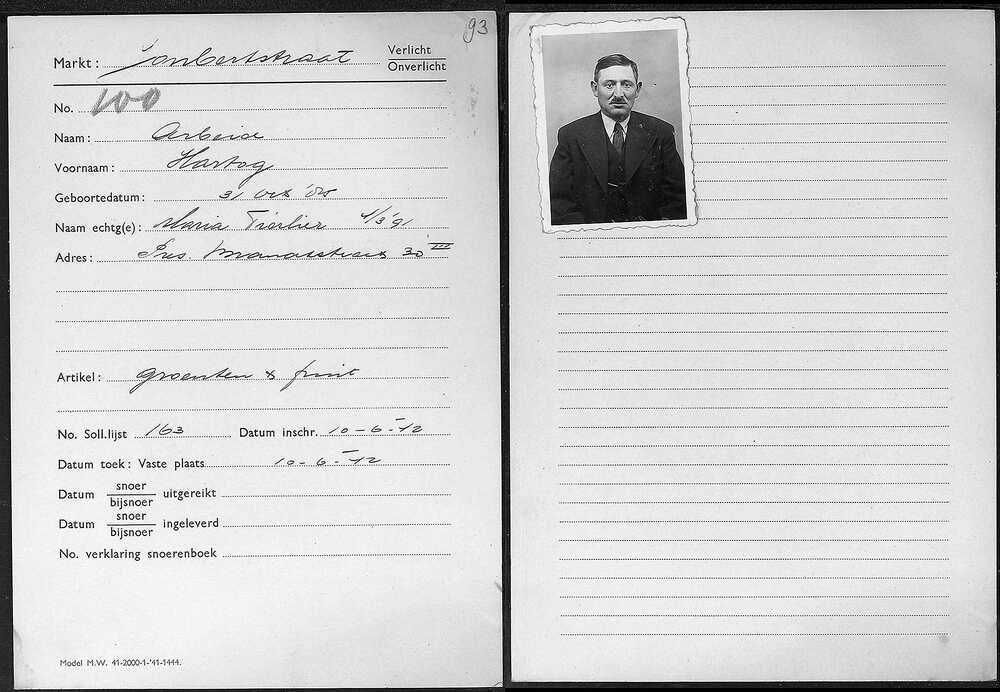 93
Markt: Joubertstraat Verlicht
Onverlicht
No. 100
Naam: Arbeid
Voornaam: Hartog
Geboortedatum: 31 Oct '05
Naam echtg(e): Maria 4/3 '9
Adres: Pres. 30 III
Artikel: groenten & fruit
No. Soll.lijst 163 Datum inschr. 10-6-42
Datum toek: Vaste plaats 10-6-42
Datum snoer uitgereikt
bijsnoer
Datum snoer ingeleverd
bijsnoer
No. verklaring snoerenboek
Model M.W. 41-2000-1-'41-1444.